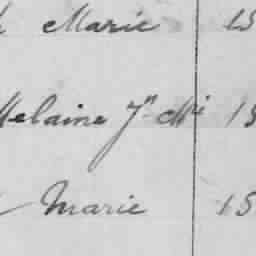 Marie 15
Melaine Jn Mi 15
Marie 15